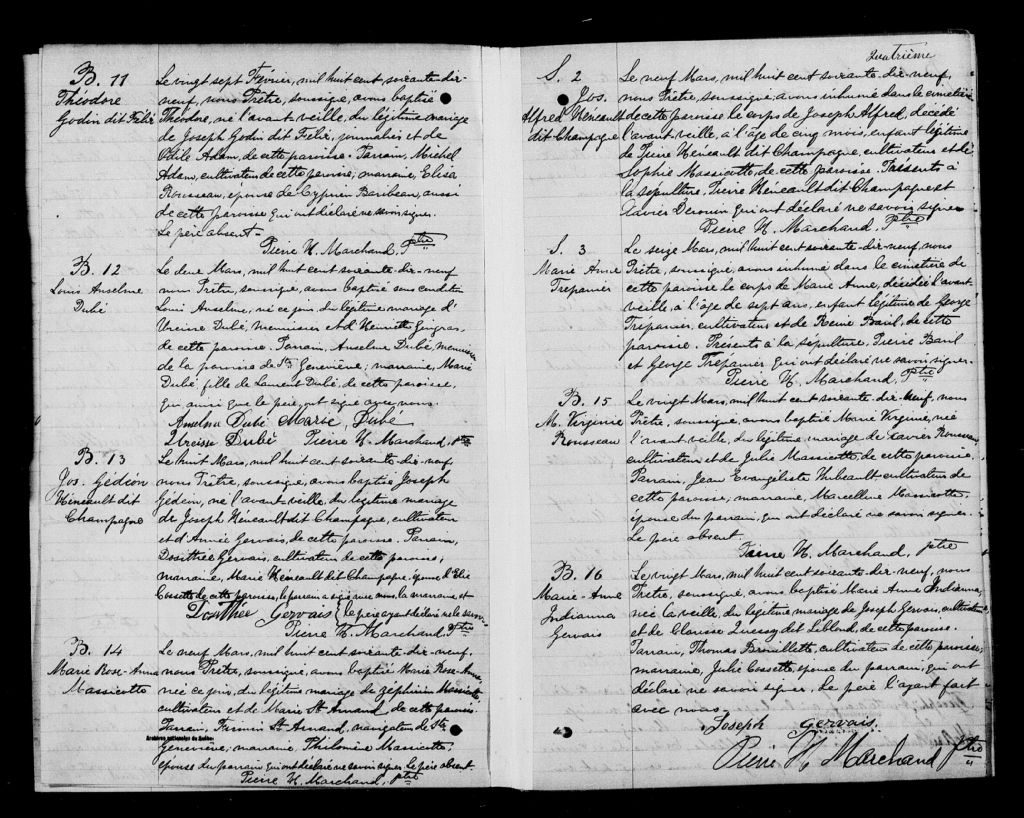 B. 11
Théodore
Godin dit Félix
Le vingt sept Février, mil huit cent soixante dix-
neuf, nous Prêtre, soussigné, avons baptisé
Théodore, né l'avant veille, du légitime mariage
de Joseph Godin dit Félix, journalier et de
Odile Adam, de cette paroisse. Parrain, Michel
Adam, cultivateur de cette paroisse; marraine, Elisa
Rousseau, épouse de Cyprien Baribeau, aussi
de cette paroisse qui ont déclaré ne savoir signer.
Le père absent.
Pierre H. Marchand, Ptre
B. 12
Louis Anselme
Dubé
Le deux Mars, mil huit cent soixante dix-neuf
nous Prêtre, soussigné, avons baptisé sous condition
Louis Anselme, né ce jour du légitime mariage d'
Dubé, menuisier et d'Henriette Gingras,
de cette paroisse. Parrain, Anselme Dubé, menuisier
de la paroisse de Ste Geneviève; marraine, Marie
Dubé fille de Laurent Dubé, de cette paroisse,
qui, ainsi que le père, ont signé avec nous.
Anselme Dubé Marie Dubé
Dubé Pierre H. Marchand, ptre
B. 13
Jos. Gédéon
Héneault dit
Champagne
Le huit Mars, mil huit cent soixante dix-neuf,
nous Prêtre, soussigné, avons baptisé Joseph
Gédéon, né l'avant-veille, du légitime mariage
de Joseph Héneault dit Champagne, cultivateur
et d'Annie Gervais, de cette paroisse. Parrain,
Dosithée Gervais, cultivateur de cette paroisse,
marraine, Marie Héneault dit Champagne, épouse d'Elie
Cossette de cette paroisse, le parrain a signé avec nous, la marraine et
Dosithée Gervais le père ayant déclaré ne le savoir.
Pierre H. Marchand, Ptre
B. 14
Marie Rose-Anna
Massicotte
Le neuf Mars, mil huit cent soixante dix-neuf,
nous Prêtre, soussigné, avons baptisé Marie Rose-Anna,
née ce jour, du légitime mariage de Zéphirin Massicotte
cultivateur et de Marie St Arnaud, de cette paroisse.
Parrain, Firmin St Arnaud, navigateur de Ste
Geneviève, marraine, Philomène Massicotte,
épouse du parrain qui ont déclaré ne savoir signer. Le père absent.
Pierre H. Marchand, ptre
Archives nationales du Québec
Quatrième
S. 2
Jos.
Alfred Héneault
dit Champagne
Le neuf Mars, mil huit cent soixante dix-neuf,
nous Prêtre, soussigné, avons inhumé dans le cimetière
de cette paroisse le corps de Joseph Alfred, décédé
l'avant veille, à l'âge de cinq mois, enfant légitime
de Pierre Héneault dit Champagne, cultivateur et de
Sophie Massicotte, de cette paroisse. Présents à
la sépulture, Pierre Héneault dit Champagne et
Xavier Derouin qui ont déclaré ne savoir signer
Pierre H. Marchand, Ptre
S. 3
Marie Anne
Trepanier
Le seize Mars, mil huit cent soixante dix-neuf, nous
Prêtre, soussigné, avons inhumé dans le cimetière de
cette paroisse le corps de Marie Anne, décédée l'avant
veille, à l'âge de sept ans, enfant légitime de George
Trepanier, cultivateur, et de Reine Baril, de cette
paroisse. Présents à la sépulture, Pierre Baril
et George Trepanier qui ont déclaré ne savoir signer.
Pierre H. Marchand, Ptre
B. 15
M. Virginie
Rousseau
Le vingt Mars, mil huit cent soixante dix-neuf, nous
Prêtre, soussigné, avons baptisé Marie Virginie, née
l'avant veille, du légitime mariage de Xavier Rousseau
cultivateur et de Julie Massicotte, de cette paroisse.
Parrain, Jean Evangeliste Thibeault cultivateur de
cette paroisse; marraine, Marcelline Massicotte,
épouse du parrain, qui ont déclaré ne savoir signer.
Le père absent.
Pierre H. Marchand, ptre
B. 16
Marie-Anne
Indianna
Gervais
Le vingt Mars, mil huit cent soixante dix-neuf, nous
Prêtre, soussigné, avons baptisé Marie Anne Indianna,
née la veille, du légitime mariage de Joseph Gervais, cultivateur
et de Clarisse Quessy dit Leblond, de cette paroisse.
Parrain, Thomas Brouillette, cultivateur de cette paroisse;
marraine, Julie Cossette épouse du parrain, qui ont
déclaré ne savoir signer. Le père l'ayant fait
avec nous.
Joseph Gervais
Pierre H Marchand ptre